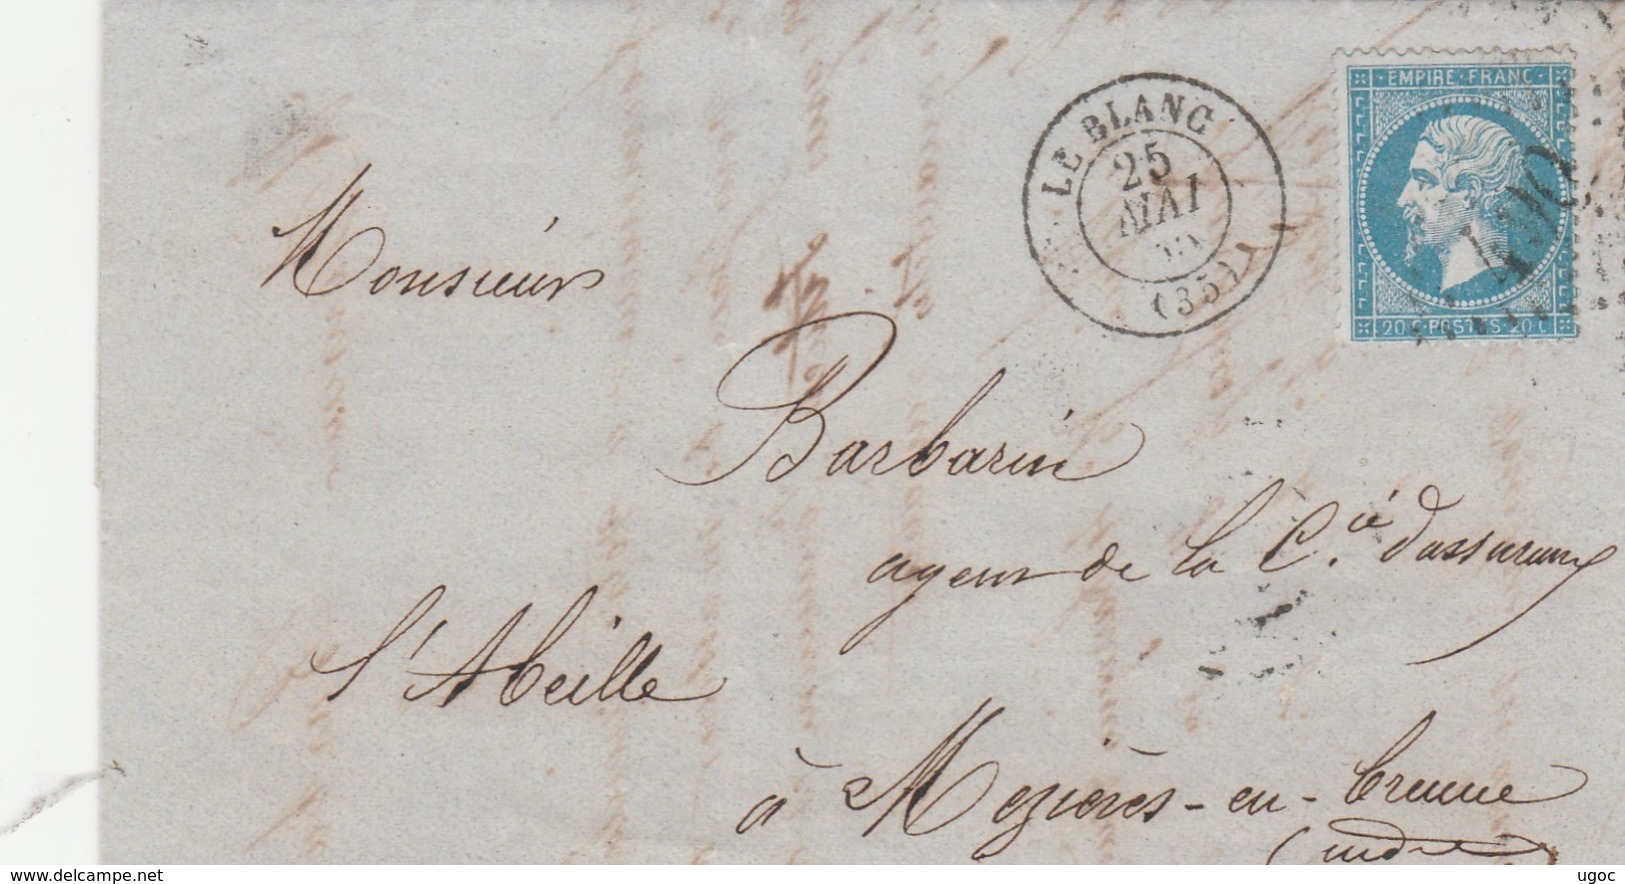 EMPIRE FRANC
LE BLANC
25
MAI
(35)
20 C POSTES 20 C
Monsieur
Barbarin
agent de la C.ie d'assurance
l'Abeille
à Mezières-en-brenne
(indre)
www.delcampe.net
ugoc